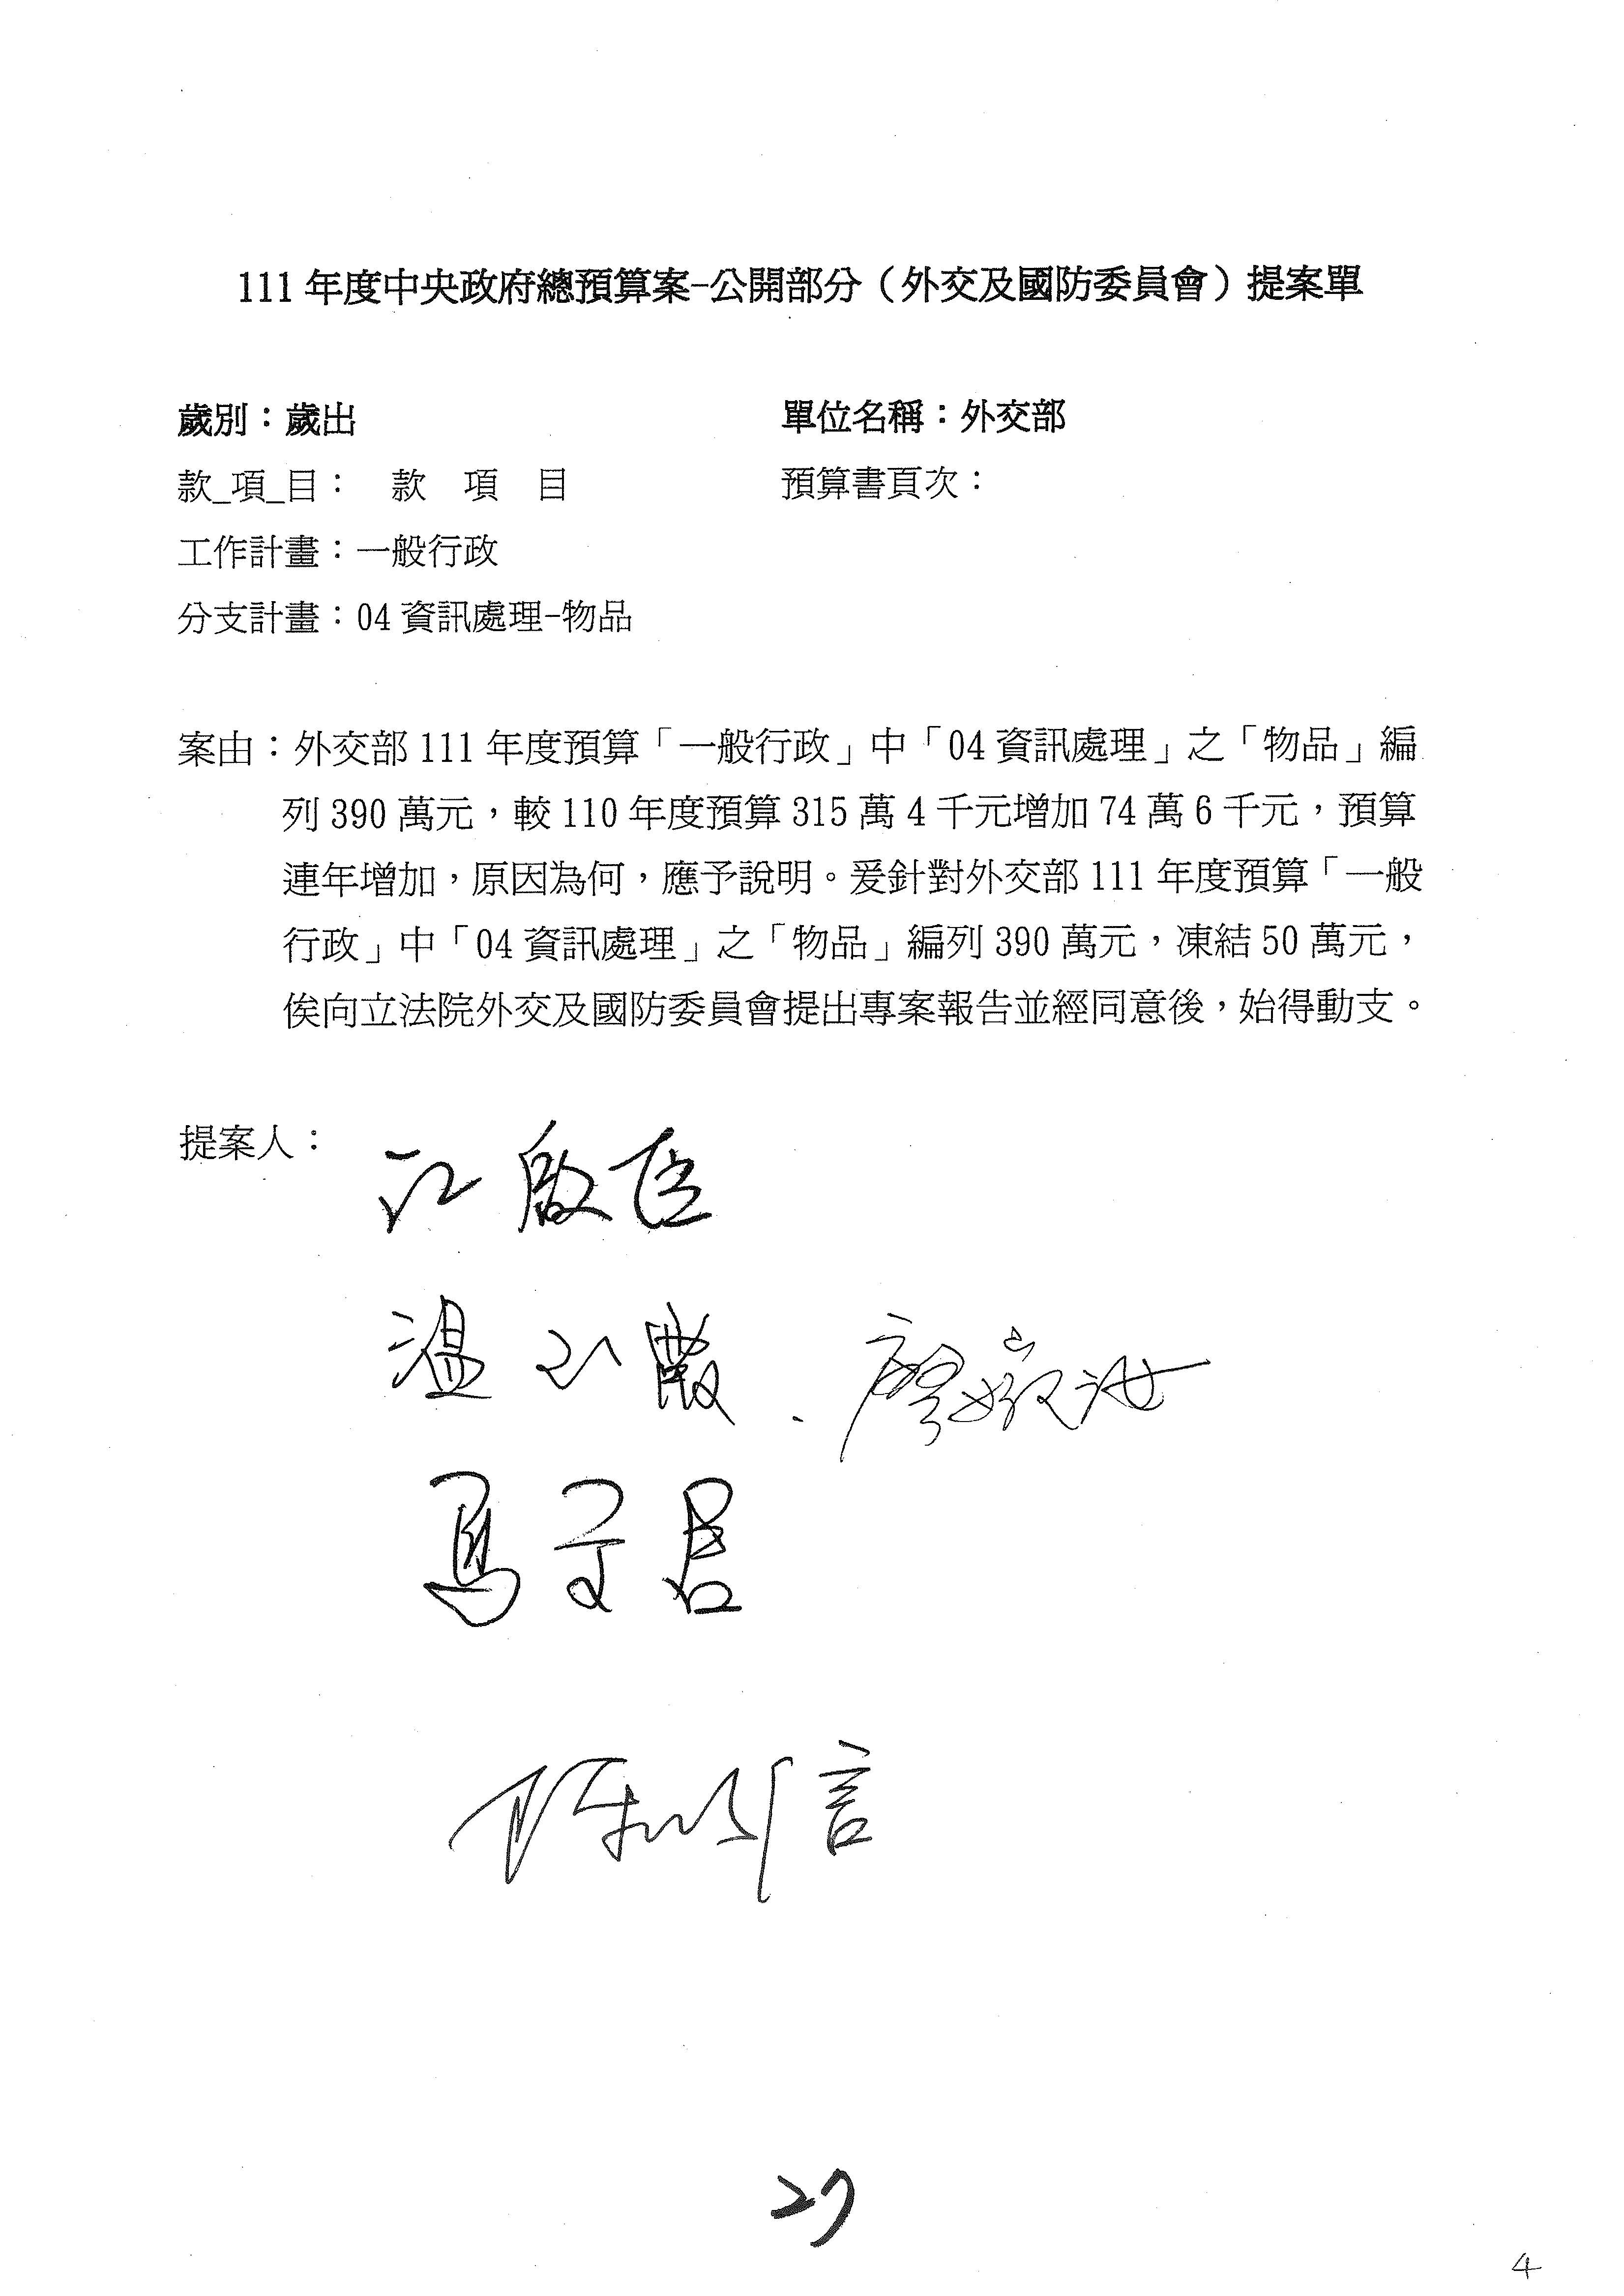 111 年度中央政府總預算案-公開部分（外交及國防委員會）提案單
歲別：歲出 單位名稱：外交部
款_項_目： 款 項 目 預算書頁次：
工作計畫：一般行政
分支計畫：04 資訊處理-物品
案由：外交部 111 年度預算「一般行政」中「04 資訊處理」之「物品」編
列 390 萬元，較 110 年度預算 315 萬 4 千元增加 74 萬 6 千元，預算
連年增加，原因為何，應予說明。爰針對外交部 111 年度預算「一般
行政」中「04 資訊處理」之「物品」編列 390 萬元，凍結 50 萬元，
俟向立法院外交及國防委員會提出專案報告並經同意後，始得動支。
提案人：
江啟臣
溫玉霞 廖婉汝
馬文君
陳以信
27
4